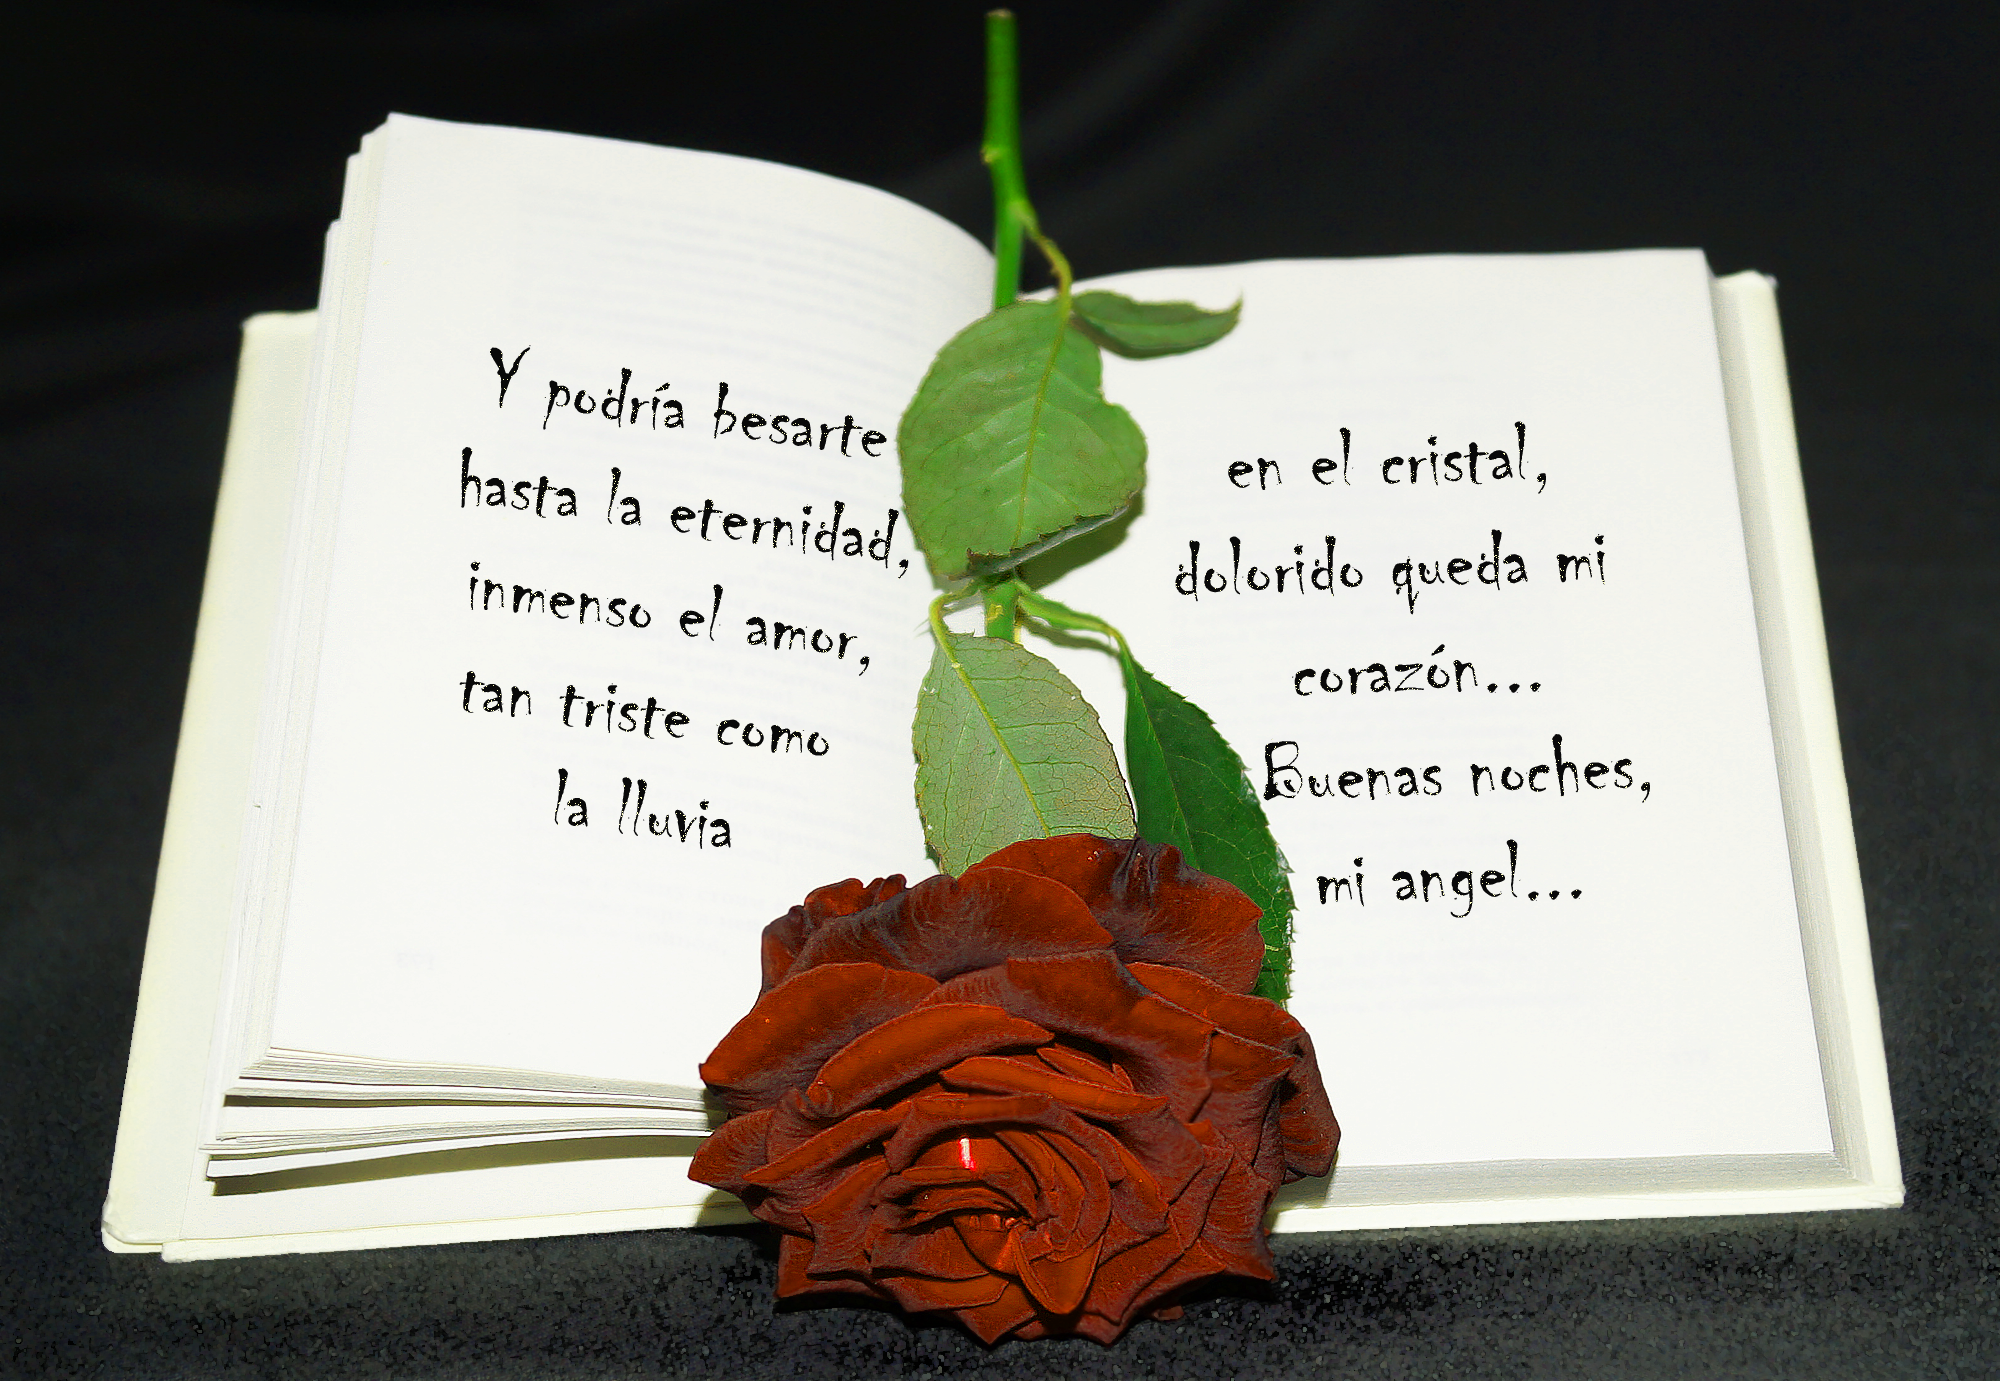 Y podría besarte
hasta la eternidad,
inmenso el amor,
tan triste como
la lluvia
en el cristal,
dolorido queda mi
corazón...
Buenas noches,
mi angel...